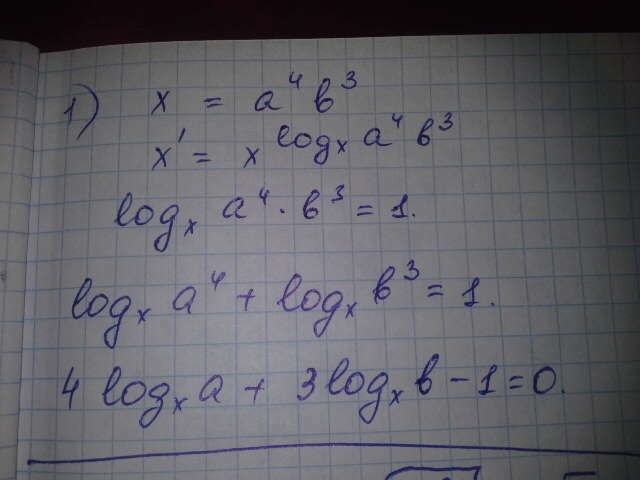 1) x = a⁴ в³
x¹ = x^(logₓ a⁴ в³)
logₓ a⁴ · в³ = 1.
logₓ a⁴ + logₓ в³ = 1.
4 logₓ a + 3 logₓ в − 1 = 0.